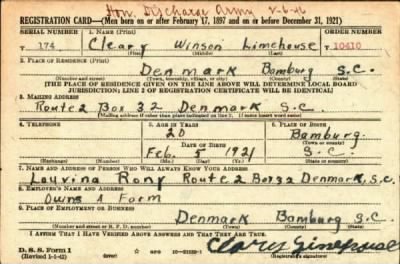 Hon. Discharge Army 2-6-46
REGISTRATION CARD—(Men born on or after February 17, 1897 and on or before December 31, 1921)
SERIAL NUMBER 1. NAME (Print) ORDER NUMBER
T 174 Cleary Winson Limehouse T 10410
(First) (Middle) (Last)
2. PLACE OF RESIDENCE (Print)
Denmark Bamburg S.C.
(Number and street) (Town, township, village, or city) (County) (State)
[THE PLACE OF RESIDENCE GIVEN ON THE LINE ABOVE WILL DETERMINE LOCAL BOARD
JURISDICTION; LINE 2 OF REGISTRATION CERTIFICATE WILL BE IDENTICAL]
3. MAILING ADDRESS
Route 2 Box 32 Denmark S.C.
[Mailing address if other than place indicated on line 2. If same insert word same]
4. TELEPHONE 5. AGE IN YEARS 6. PLACE OF BIRTH
20 Bamburg
DATE OF BIRTH
Feb. 5 1921 S.C.
(Mo.) (Day) (Yr.)
7. NAME AND ADDRESS OF PERSON WHO WILL ALWAYS KNOW YOUR ADDRESS
Route 2 Denmark, S.C.
8. EMPLOYER'S NAME AND ADDRESS
Owns A Farm
9. PLACE OF EMPLOYMENT OR BUSINESS
Denmark Bamburg S.C.
(Number and street or R. F. D. number) (Town) (County) (State)
I AFFIRM THAT I HAVE VERIFIED ABOVE ANSWERS AND THAT THEY ARE TRUE.
D. S. S. Form 1
(Revised 1-1-42) (over)
(Registrant's signature)